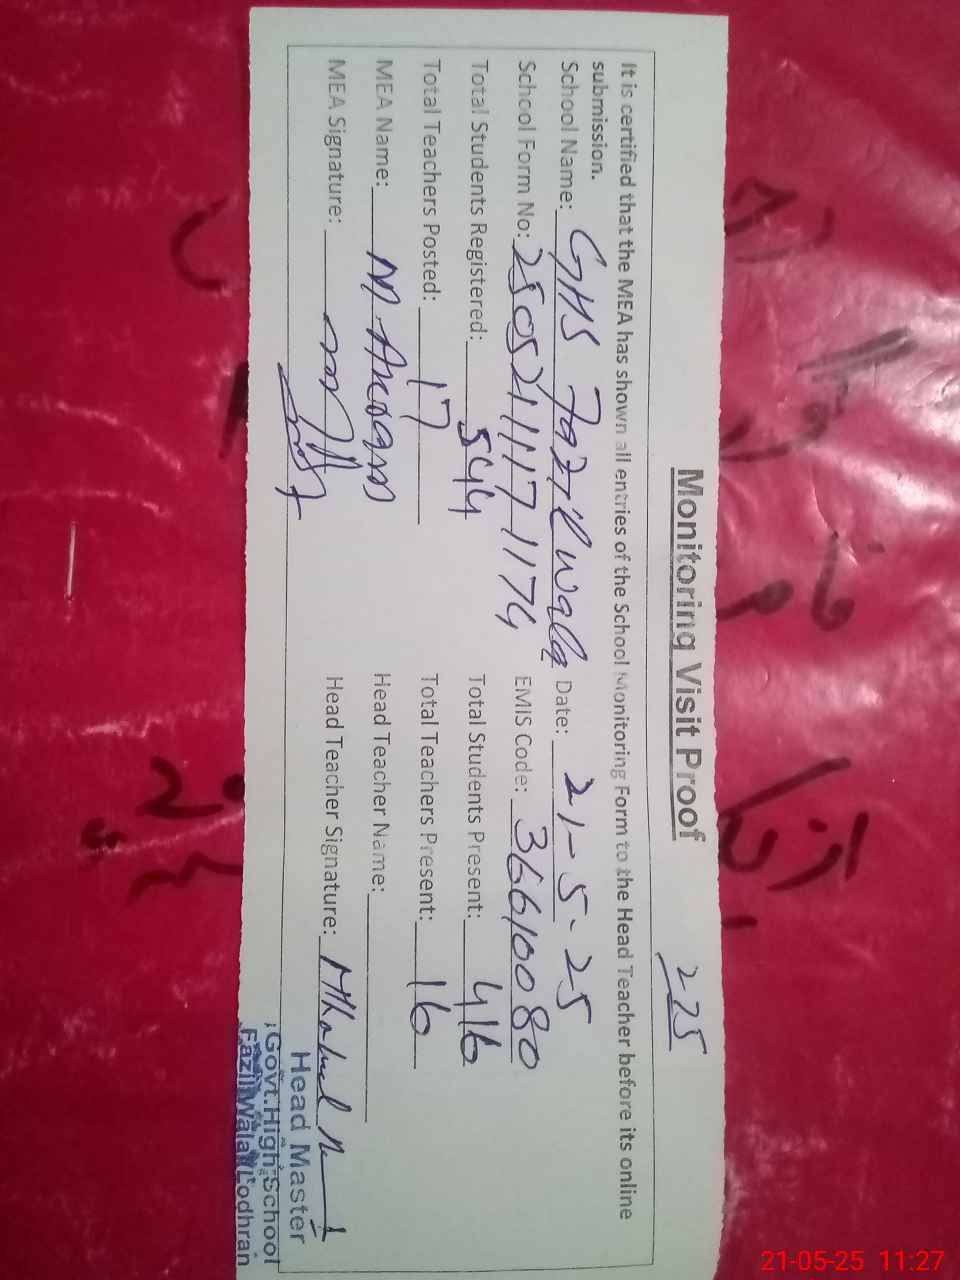 225
Monitoring Visit Proof
It is certified that the MEA has shown all entries of the School Monitoring Form to the Head Teacher before its online
submission.
School Name: GHS Fazil Wala Date: 21-5-25
School Form No: EMIS Code: 36610080
Total Students Registered: 544 Total Students Present: 416
Total Teachers Posted: 17 Total Teachers Present: 16
MEA Name: M. Akram Head Teacher Name:
MEA Signature: Head Teacher Signature:
Head Master
Govt. High School
Fazil Wala (Lodhran
21-05-25 11:27